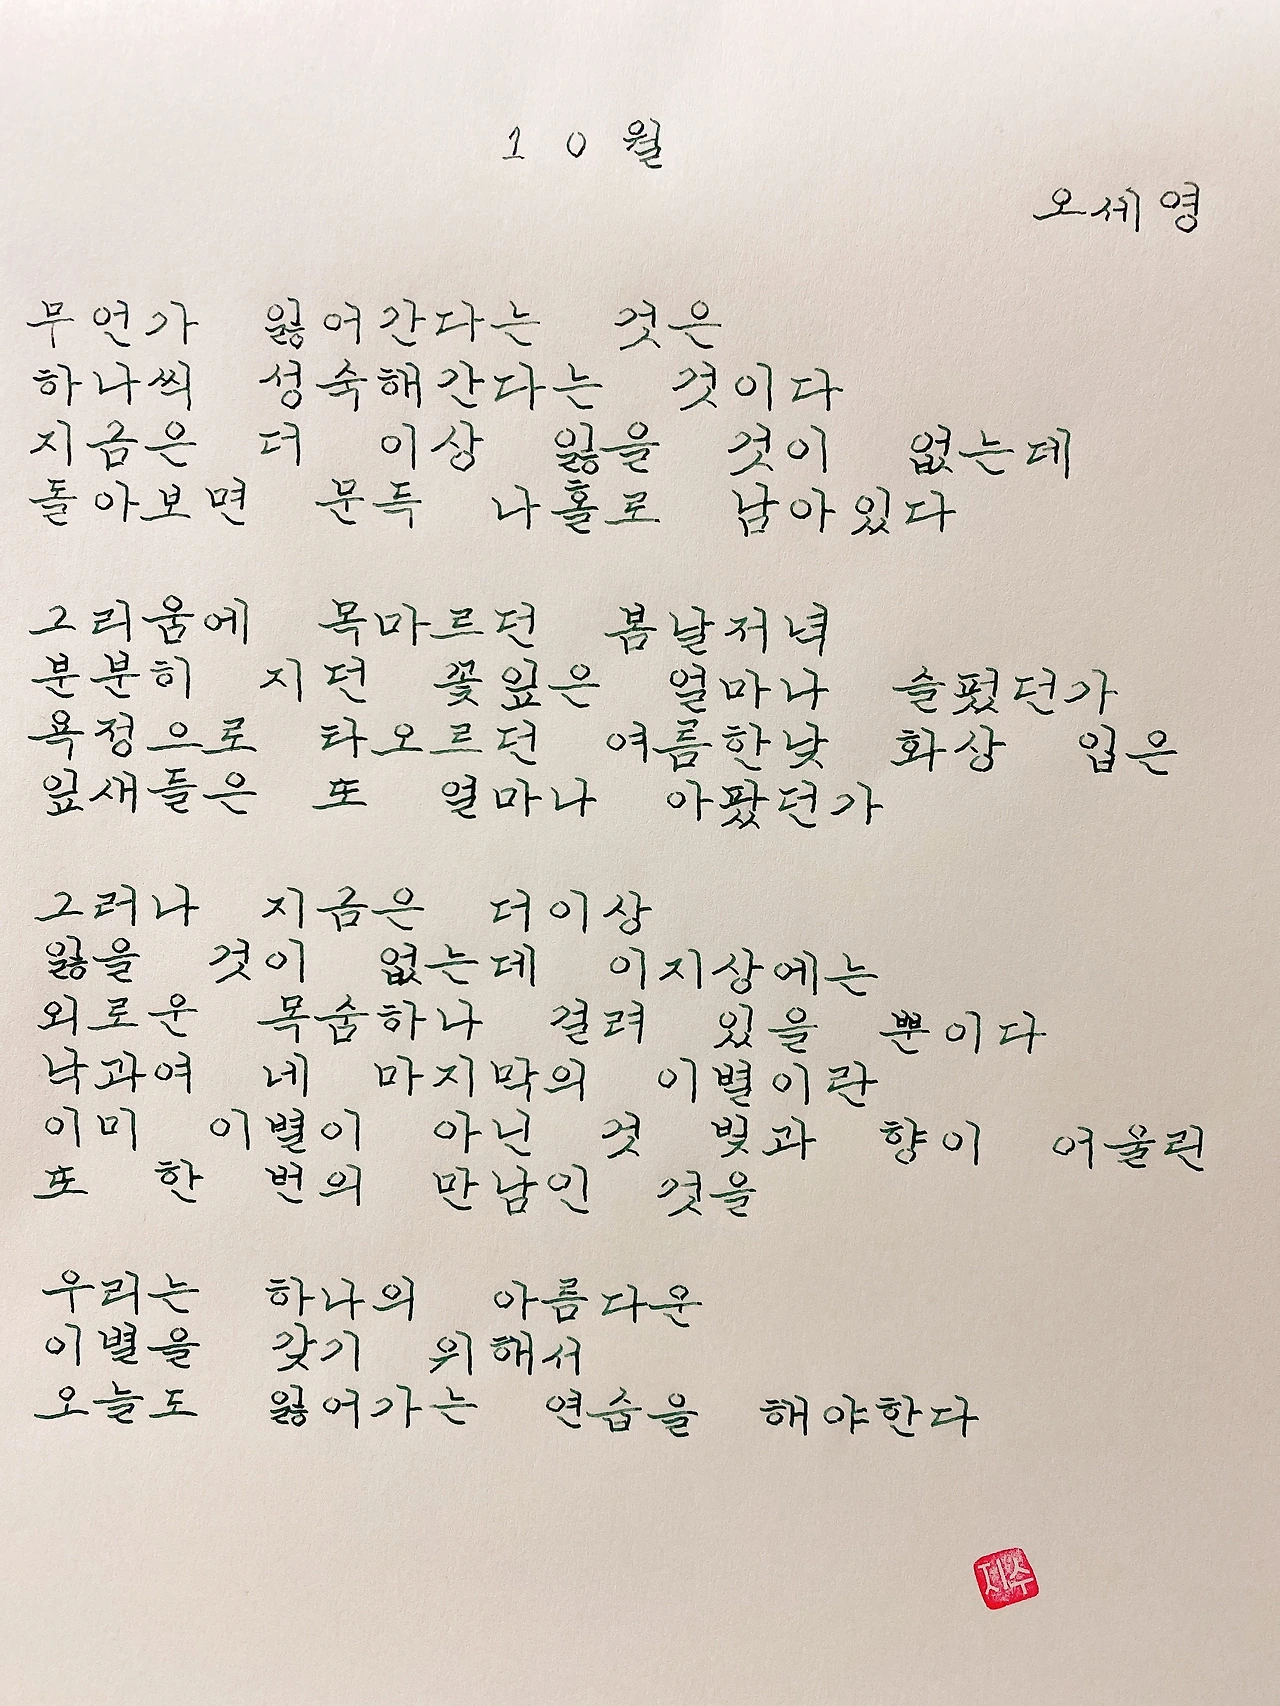 10월
오세영
무언가 잃어간다는 것은
하나씩 성숙해간다는 것이다
지금은 더 이상 잃을 것이 없는데
돌아보면 문득 나홀로 남아있다
그리움에 목마르던 봄날저녁
분분히 지던 꽃잎은 얼마나 슬펐던가
욕정으로 타오르던 여름한낮 화상 입은
잎새들은 또 얼마나 아팠던가
그러나 지금은 더이상
잃을 것이 없는데 이지상에는
외로운 목숨하나 걸려 있을 뿐이다
낙과여 네 마지막의 이별이란
이미 이별이 아닌 것 빛과 향이 어울린
또 한 번의 만남인 것을
우리는 하나의 아름다운
이별을 갖기 위해서
오늘도 잃어가는 연습을 해야한다
지수